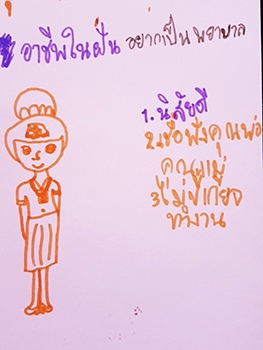 อาชีพในฝัน อยากเป็น พยาบาล
1.นิสัยดี
2.เชื่อฟังคุณพ่อ
คุณแม่
3ไม่ขี้เกียจ
ทำงาน